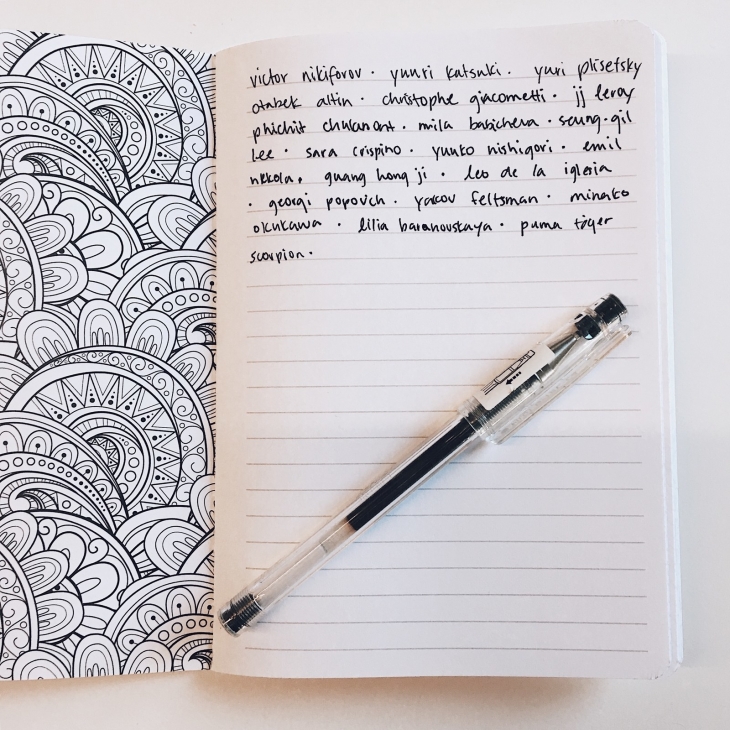 victor nikiforov · yuuri katsuki · yuri plisetsky
otabek altin · christophe giacometti · jj leroy
phichit chulanont · mila babicheva · seung-gil
lee · sara crispino · yuuko nishigori · emil
nekola · guang hong ji · leo de la iglesia
· georgi popovich · yakov feltsman · minako
okukawa · lilia baranovskaya · puma tiger
scorpion ·